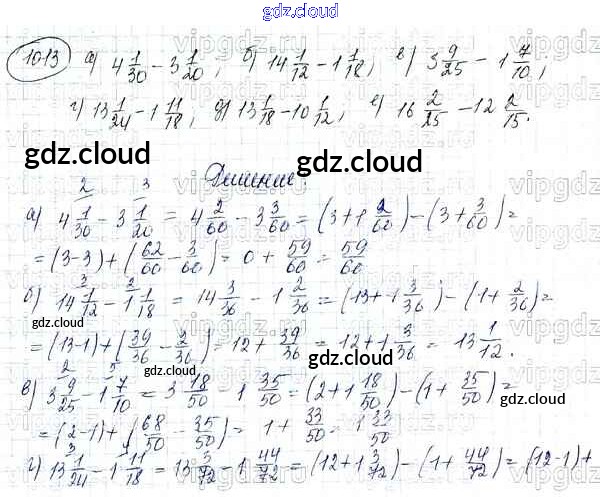 gdz.cloud
1013 а) 4 1/30 - 3 1/20; б) 14 1/12 - 1 1/18; в) 3 9/25 - 1 7/10;
г) 13 1/24 - 1 11/18; д) 13 1/18 - 10 1/12; е) 16 2/25 - 12 2/15.
gdz.cloud gdz.cloud
Решение:
а) 4 1/30 - 3 1/20 = 4 2/60 - 3 3/60 = (3+1 2/60) - (3+3/60) =
= (3-3) + (62/60 - 3/60) = 0 + 59/60 = 59/60
б) 14 1/12 - 1 1/18 = 14 3/36 - 1 2/36 = (13+1 3/36) - (1+2/36) =
gdz.cloud
= (13-1) + (39/36 - 2/36) = 12 + 39/36 = 12+1 3/36 = 13 1/12.
gdz.cloud gdz.cloud
в) 3 9/25 - 1 7/10 = 3 18/50 - 1 35/50 = (2+1 18/50) - (1+35/50) =
= (2-1) + (68/50 - 35/50) = 1 + 33/50 = 1 33/50
gdz.cloud
г) 13 1/24 - 1 11/18 = 13 3/72 - 1 44/72 = (12+1 3/72) - (1+44/72) = (12-1)+